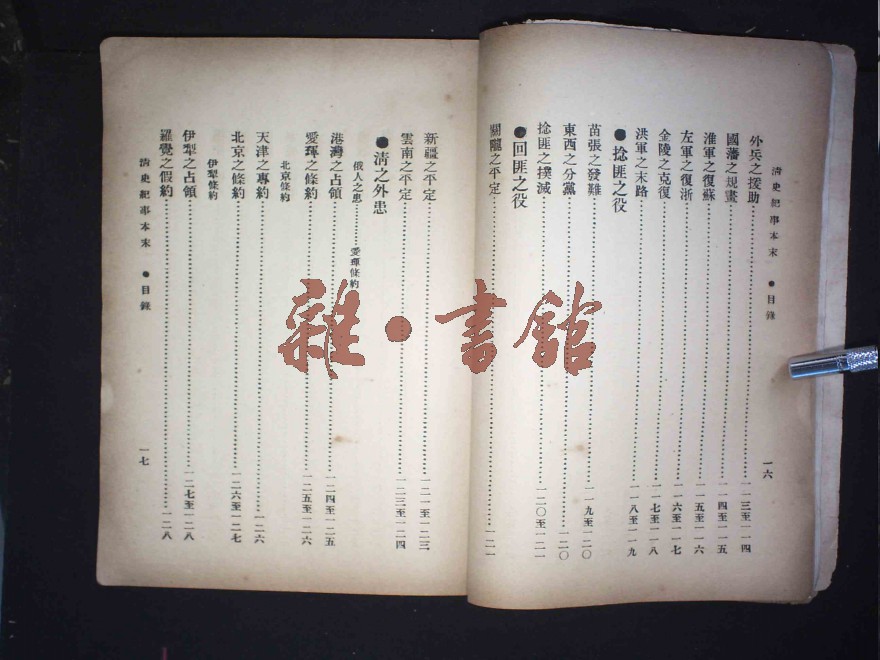 清史紀事本末 ●目錄 一六
外兵之援助 一一三至一一四
國藩之規畫 一一四至一一五
淮軍之復蘇 一一五至一一六
左軍之復浙 一一六至一一七
金陵之克復 一一七至一一八
洪軍之末路 一一八至一一九
●捻匪之役
苗張之發難 一一九至一二〇
東西之分黨 一二〇
捻匪之撲滅 一二〇至一二一
●回匪之役
關隴之平定 一二一
新疆之平定 一二一至一二三
雲南之平定 一二三至一二四
●清之外患
俄人之患 愛琿條約
港灣之占領 一二四至一二五
愛琿之條約 一二五至一二六
北京條約
天津之專約 一二六
北京之條約 一二六至一二七
伊犁條約
伊犁之占領 一二七至一二八
羅覺之假約 一二八
清史紀事本末 ●目錄 一七
雜·書館